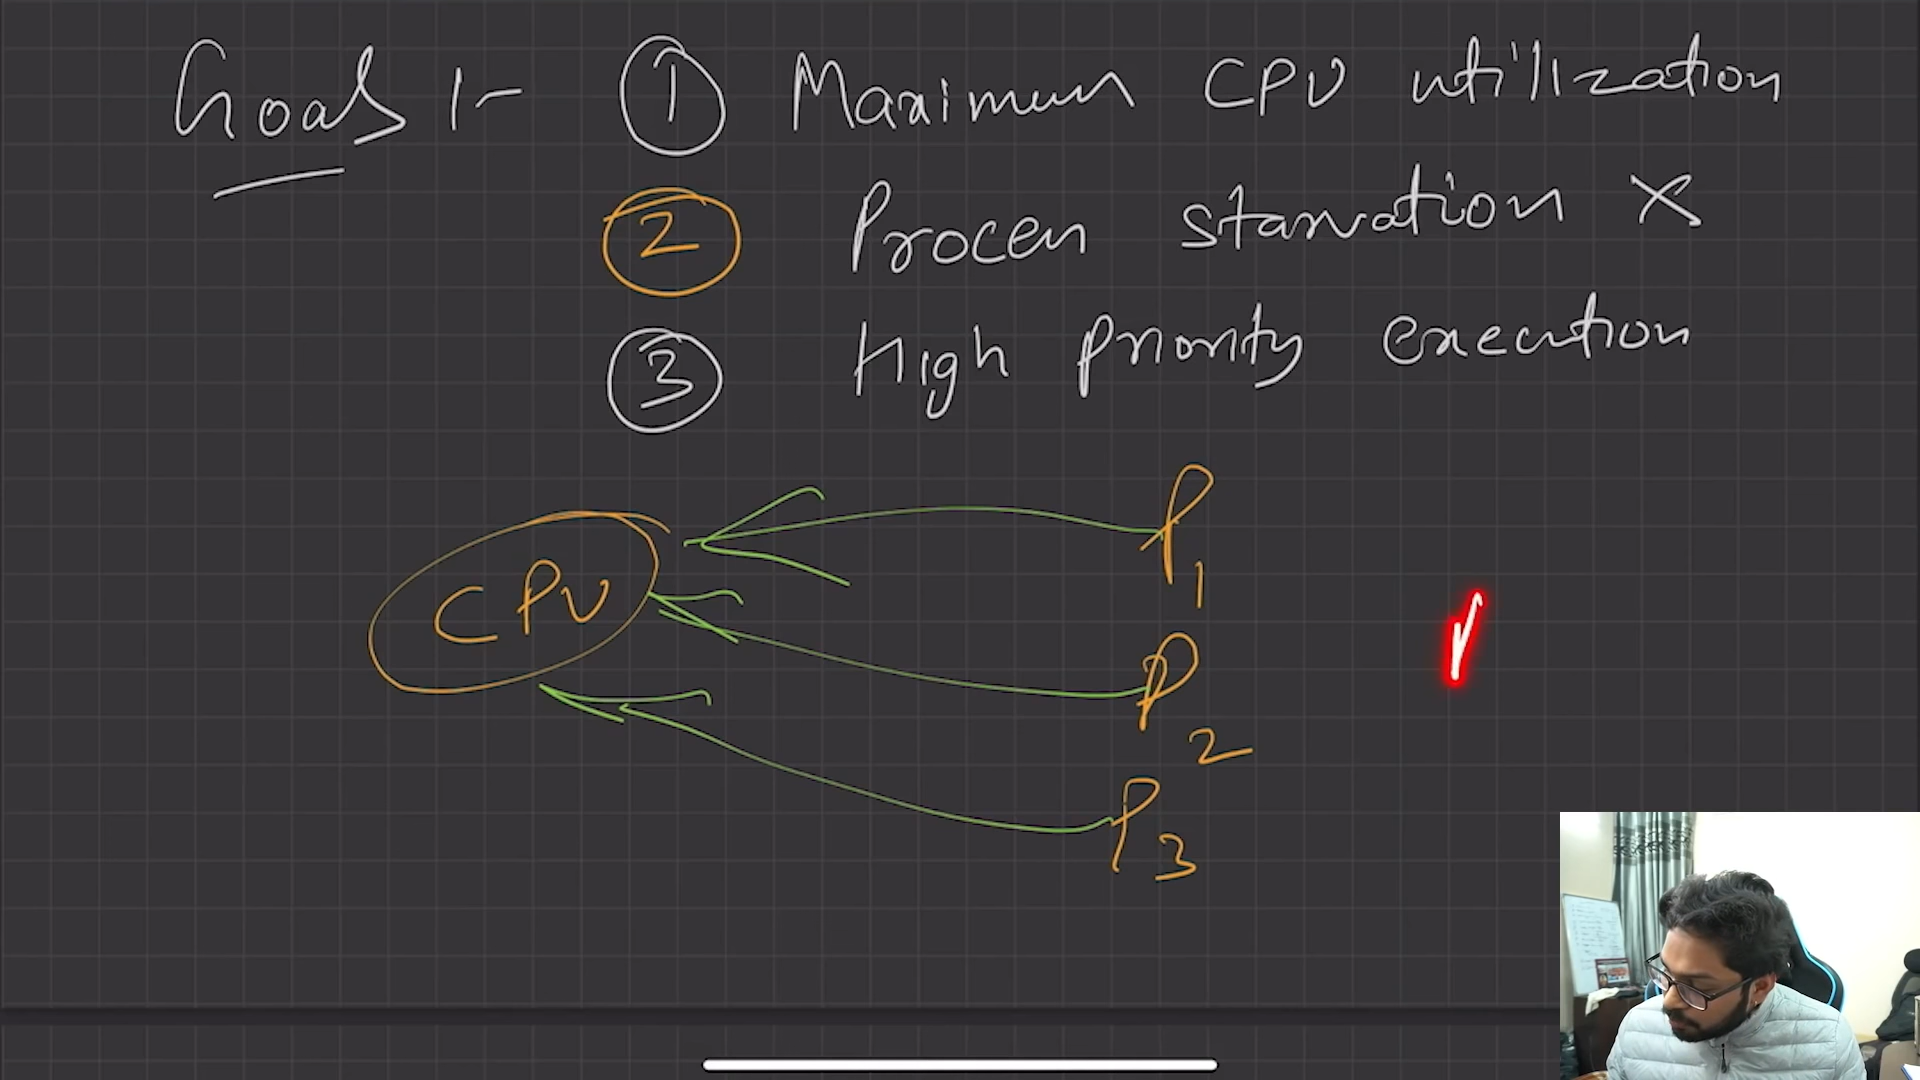 Goals :-
① Maximum CPU utilization
② Process starvation ×
③ High priority execution
CPU
P1
P2
P3